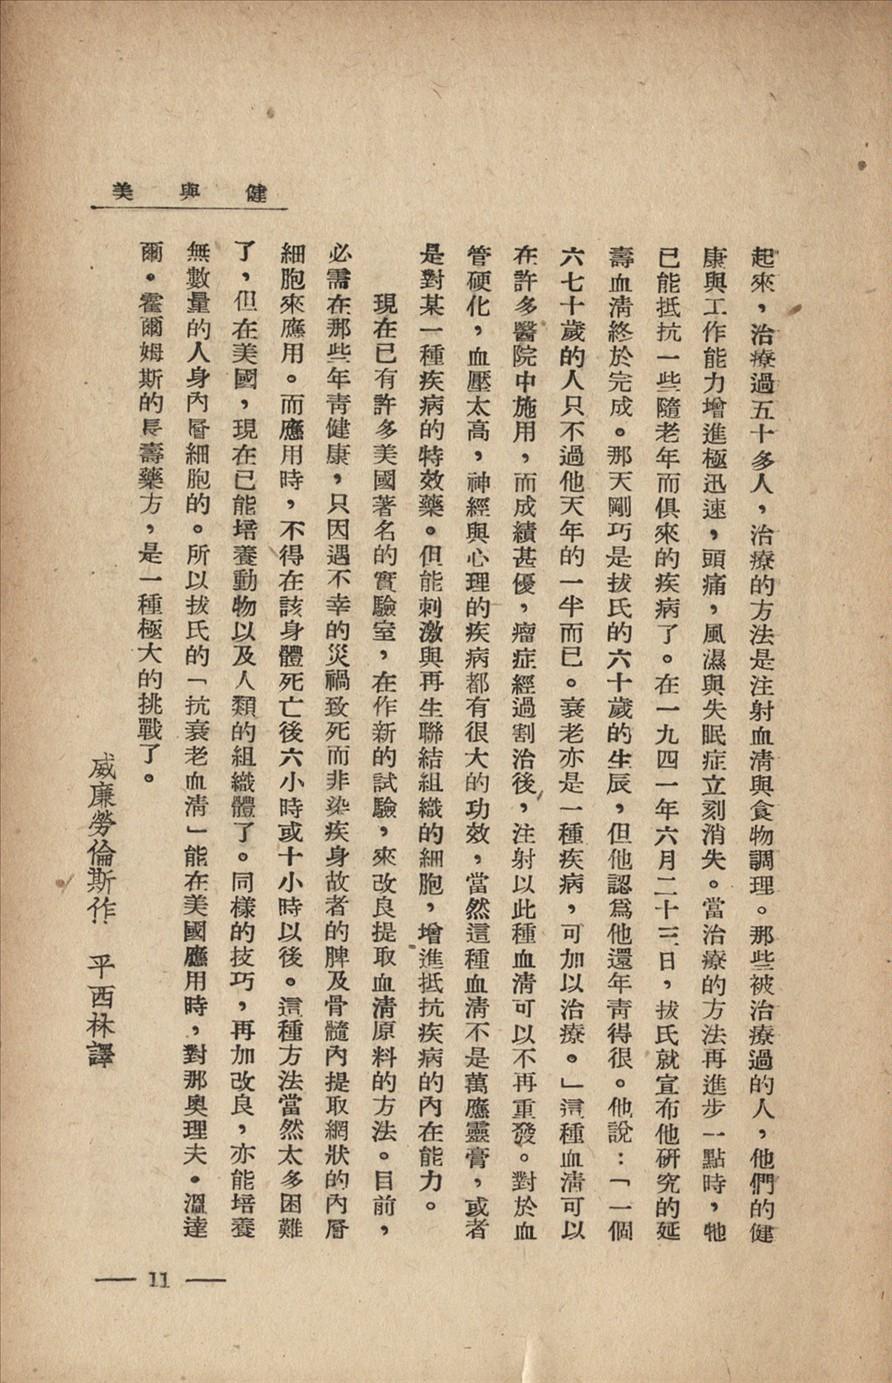 健與美
起來，治療過五十多人，治療的方法是注射血清與食物調理。那些被治療過的人，他們的健
康與工作能力增進極迅速，頭痛，風濕與失眠症立刻消失。當治療的方法再進步一點時，牠
已能抵抗一些隨老年而俱來的疾病了。在一九四一年六月二十三日，拔氏就宣布他研究的延
壽血清終於完成。那天剛巧是拔氏的六十歲的生辰，但他認爲他還年靑得很。他說：「一個
六七十歲的人只不過他天年的一半而已。衰老亦是一種疾病，可加以治療。」這種血清可以
在許多醫院中施用，而成績甚優，瘤症經過割治後，注射以此種血清可以不再重發。對於血
管硬化，血壓太高，神經與心理的疾病都有很大的功效，當然這種血清不是萬應靈膏，或者
是對某一種疾病的特效藥。但能刺激與再生聯結組織的細胞，增進抵抗疾病的內在能力。
現在已有許多美國著名的實驗室，在作新的試驗，來改良提取血清原料的方法。目前，
必需在那些年靑健康，只因遇不幸的災禍致死而非染疾身故者的脾及骨髓內提取網狀的內層
細胞來應用。而應用時，不得在該身體死亡後六小時或十小時以後。這種方法當然太多困難
了，但在美國，現在已能培養動物以及人類的組織體了。同樣的技巧，再加改良，亦能培養
無數量的人身內層細胞的。所以拔氏的「抗衰老血清」能在美國應用時，對那奧理夫・溫達
爾・霍爾姆斯的長壽藥方，是一種極大的挑戰了。
威廉勞倫斯作　平西林譯
— 11 —